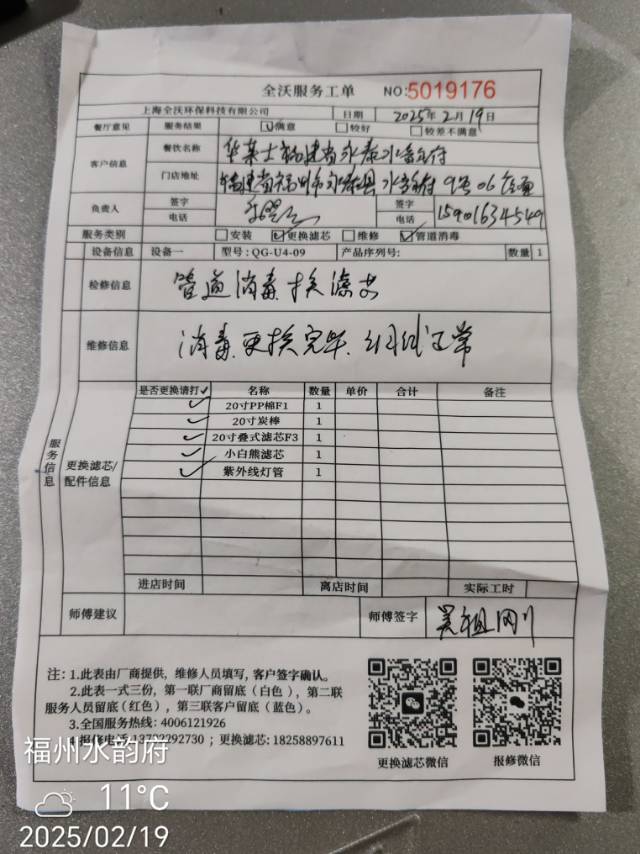 全沃服务工单 NO:5019176
上海全沃环保科技有限公司 日期 2025年2月19日
餐厅意见 服务结果 ☑满意 □较好 □较差不满意
客户信息 餐饮名称 华莱士福建省永泰水韵府
门店地址 福建省福州市永泰县水韵府9号06店面
负责人 签字 签字
电话 电话 15901634549
服务类别 □安装 ☑更换滤芯 □维修 ☑管道消毒
设备信息 设备一 型号:QG-U4-09 产品序列号: 数量 1
检修信息 管道消毒 换滤芯
维修信息 消毒.更换完毕.调试正常
服务信息
更换滤芯/配件信息
是否更换请打✓ 名称 数量 单价 合计 备注
✓ 20寸PP棉F1 1
✓ 20寸炭棒 1
✓ 20寸叠式滤芯F3 1
✓ 小白熊滤芯 1
✓ 紫外线灯管 1
进店时间 离店时间 实际工时
师傅建议 师傅签字 吴祖刚
注:1.此表由厂商提供,维修人员填写,客户签字确认。
2.此表一式三份,第一联厂商留底(白色),第二联
服务人员留底(红色),第三联客户留底(蓝色)。
3.全国服务热线:4006121926
4.报修电话 ;更换滤芯:18258897611
更换滤芯微信 报修微信
福州水韵府
11°C
2025/02/19